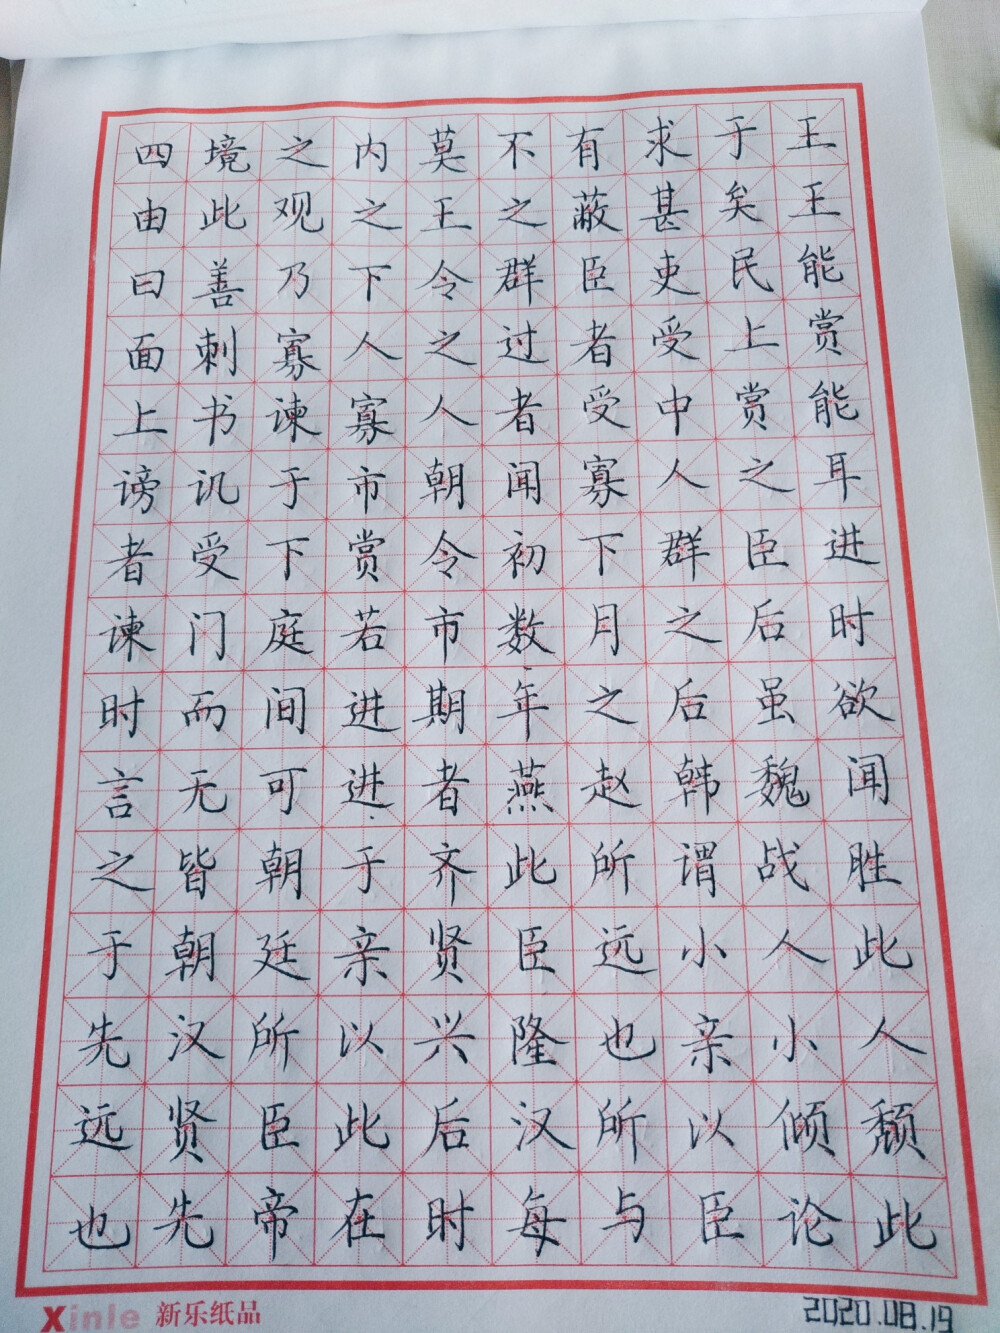 四境之内莫不有求于王
由此观之王之蔽甚矣王
曰善乃下令群臣吏民能
面刺寡人之过者受上赏
上书谏寡人者受中赏能
谤讥于市朝闻寡人之耳
者受下赏令初下群臣进
谏门庭若市数月之后时
时而间进期年之后虽欲
言无可进者燕赵韩魏闻
之皆朝于齐此所谓战胜
于朝廷亲贤臣远小人此
先汉所以兴隆也亲小人
远贤臣此后汉所以倾颓
也先帝在时每与臣论此
Xinle 新乐纸品
2020.08.19